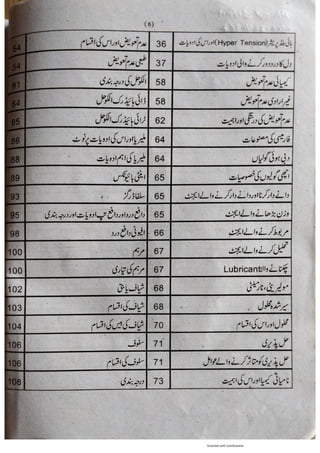 (6)
ہائی بلڈ پریشر (Hyper Tension) اور اس کی ادویات 36 عدم تعویض اور اس کی اقسام 54
دل کا درد دور کرنے والی ادویات 37 طبعی عدم تعویض 54
کیمیائی عدم تعویض 58 الکوحل کی درجہ بندی 81
غیر ارادی عدم تعویض 58 ڈائی ہائیڈرک الکوحل 84
عدم تعویض کی درستگی اور اہمیت 62 ٹرائی ہائیڈرک الکوحل 85
فارمیسی کی مصنوعات 64 ملیریا اور اس کی ادویات پر نوٹ 86
دبی ہوئی گولیاں 64 ملیریا کی اہم ادویات 88
اچھی گولیوں کی خصوصیات 65 اینٹی بائیوٹکس 89
دانے دار کرنا اور دانے دار کرنے والے ایجنٹ 65 سلفا ڈرگز 93
وزن بڑھانے والے ایجنٹ 65 دافع درد اور دافع تپ ادویات اور درجہ بندی 95
مربوط کرنے والے ایجنٹ 66 افیونی دافع درد 98
تحلیل کرنے والے ایجنٹ 67 مرہم 100
چکنانے والے Lubricant 67 مرہم کی تیاری 100
68 شیاف یا بتی 102
سیر شدہ محلول 68 شیاف کی اقسام 103
محلول اور اس کی اقسام 70 شیاف کی بیس کی اقسام 104
حل پذیری 71 سفوف 106
حل پذیری کو متاثر کرنے والے عوامل 71 سفوف کی اقسام 106
نامیاتی کیمیا اور اس کی اہمیت 73 درجہ بندی 108